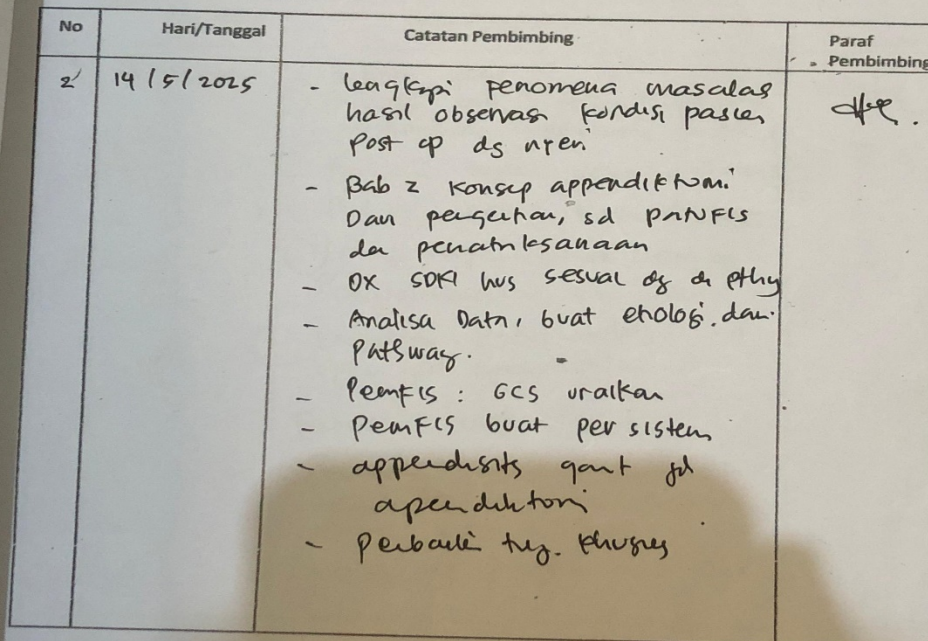 No
Hari/Tanggal
Catatan Pembimbing
Paraf
Pembimbing
2
14/5/2025
- lengkapi fenomena masalah
hasil observasi kondisi pasien
Post op dg nyeri
- Bab 2 konsep appendiktomi
Dari pengertian, sd PATOFIS
dan penatalaksanaan
- DX SDKI hrs sesuai dg
- Analisa Data, buat etiologi dari
Pathway.
- Pemfis : GCS uraikan
- Pemfis buat per sistem
- appendisits gant jd
apendiktomi
- Perbaiki tuj. khusus